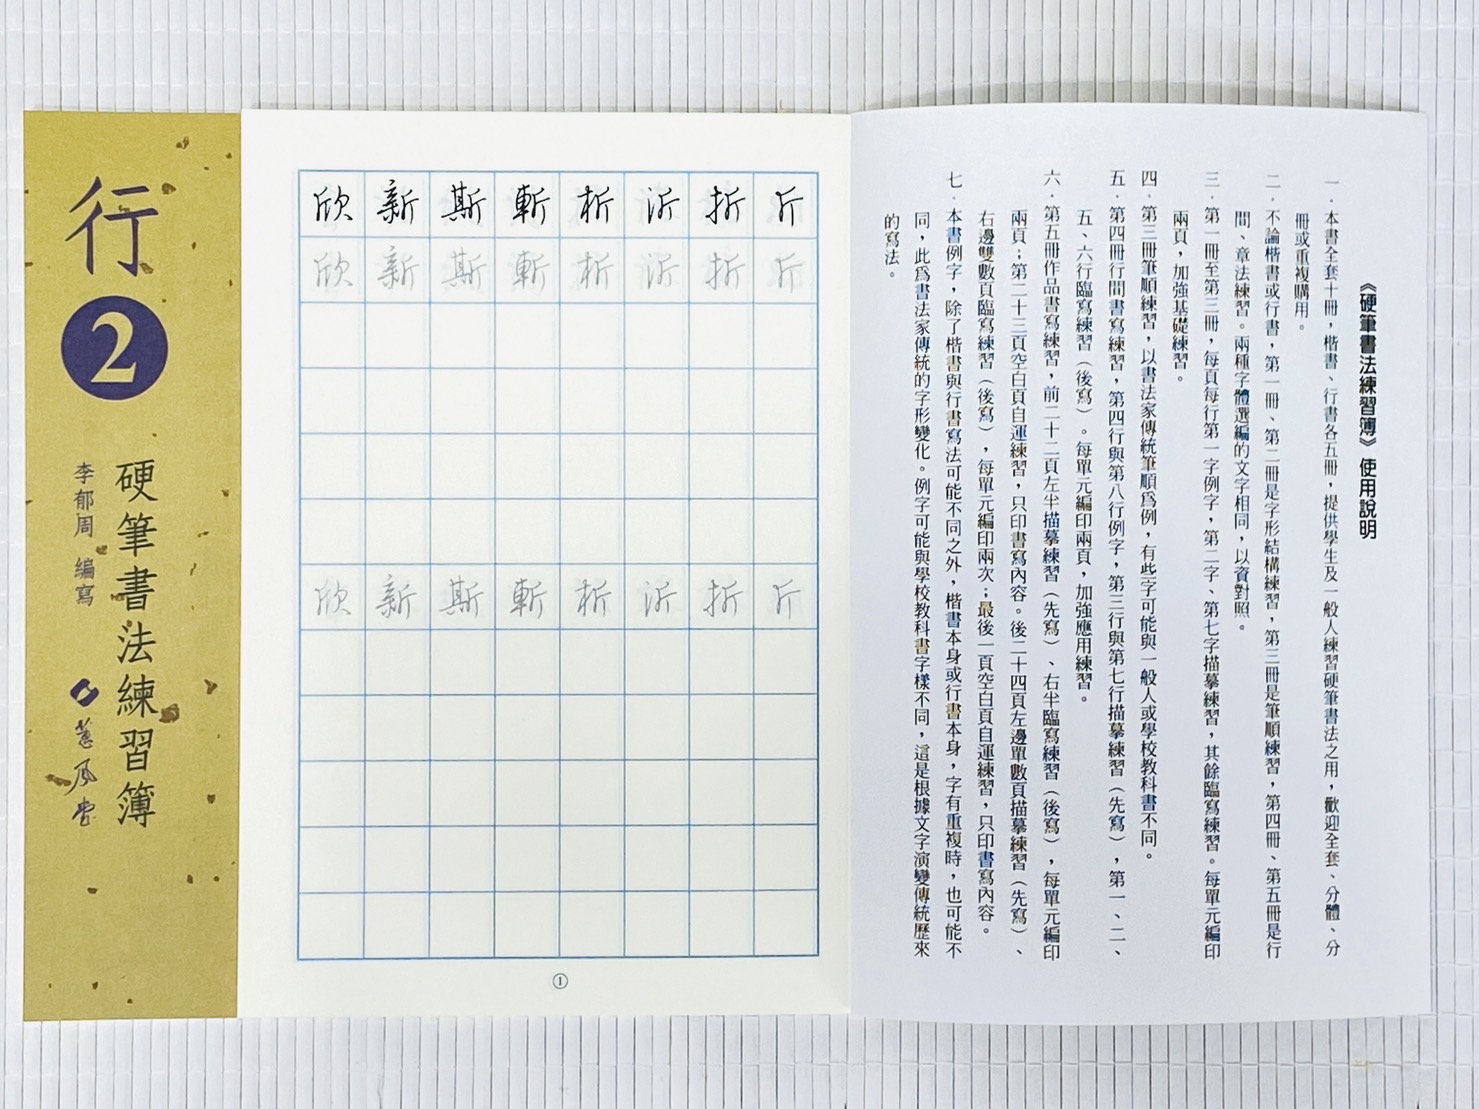 《硬筆書法練習簿》使用說明
一．本書全套十冊，楷書、行書各五冊，提供學生及一般人練習硬筆書法之用，歡迎全套、分體、分
冊或重複購用。
二．不論楷書或行書，第一冊、第二冊是字形結構練習，第三冊是筆順練習，第四冊、第五冊是行
間、章法練習。兩種字體選編的文字相同，以資對照。
三．第一冊至第三冊，每頁每行第一字例字，第二字、第七字描摹練習，其餘臨寫練習。每單元編印
兩頁，加強基礎練習。
四．第三冊筆順練習，以書法家傳統筆順爲例，有些字可能與一般人或學校教科書不同。
五．第四冊行間書寫練習，第四行與第八行例字，第三行與第七行描摹練習（先寫），第一、二、
五、六行臨寫練習（後寫）。每單元編印兩頁，加強應用練習。
六．第五冊作品書寫練習，前二十二頁左半描摹練習（先寫）、右半臨寫練習（後寫），每單元編印
兩頁；第二十三頁空白頁自運練習，只印書寫內容。後二十四頁左邊單數頁描摹練習（先寫）、
右邊雙數頁臨寫練習（後寫），每單元編印兩次；最後一頁空白頁自運練習，只印書寫內容。
七．本書例字，除了楷書與行書寫法可能不同之外，楷書本身或行書本身，字有重複時，也可能不
同，此爲書法家傳統的字形變化。例字可能與學校教科書字樣不同，這是根據文字演變傳統歷來
的寫法。
斤 折 沂 析 斬 斯 新 欣
斤 折 沂 析 斬 斯 新 欣
斤 折 沂 析 斬 斯 新 欣
①
行
2
硬筆書法練習簿
李郁周 編寫
蕙風堂